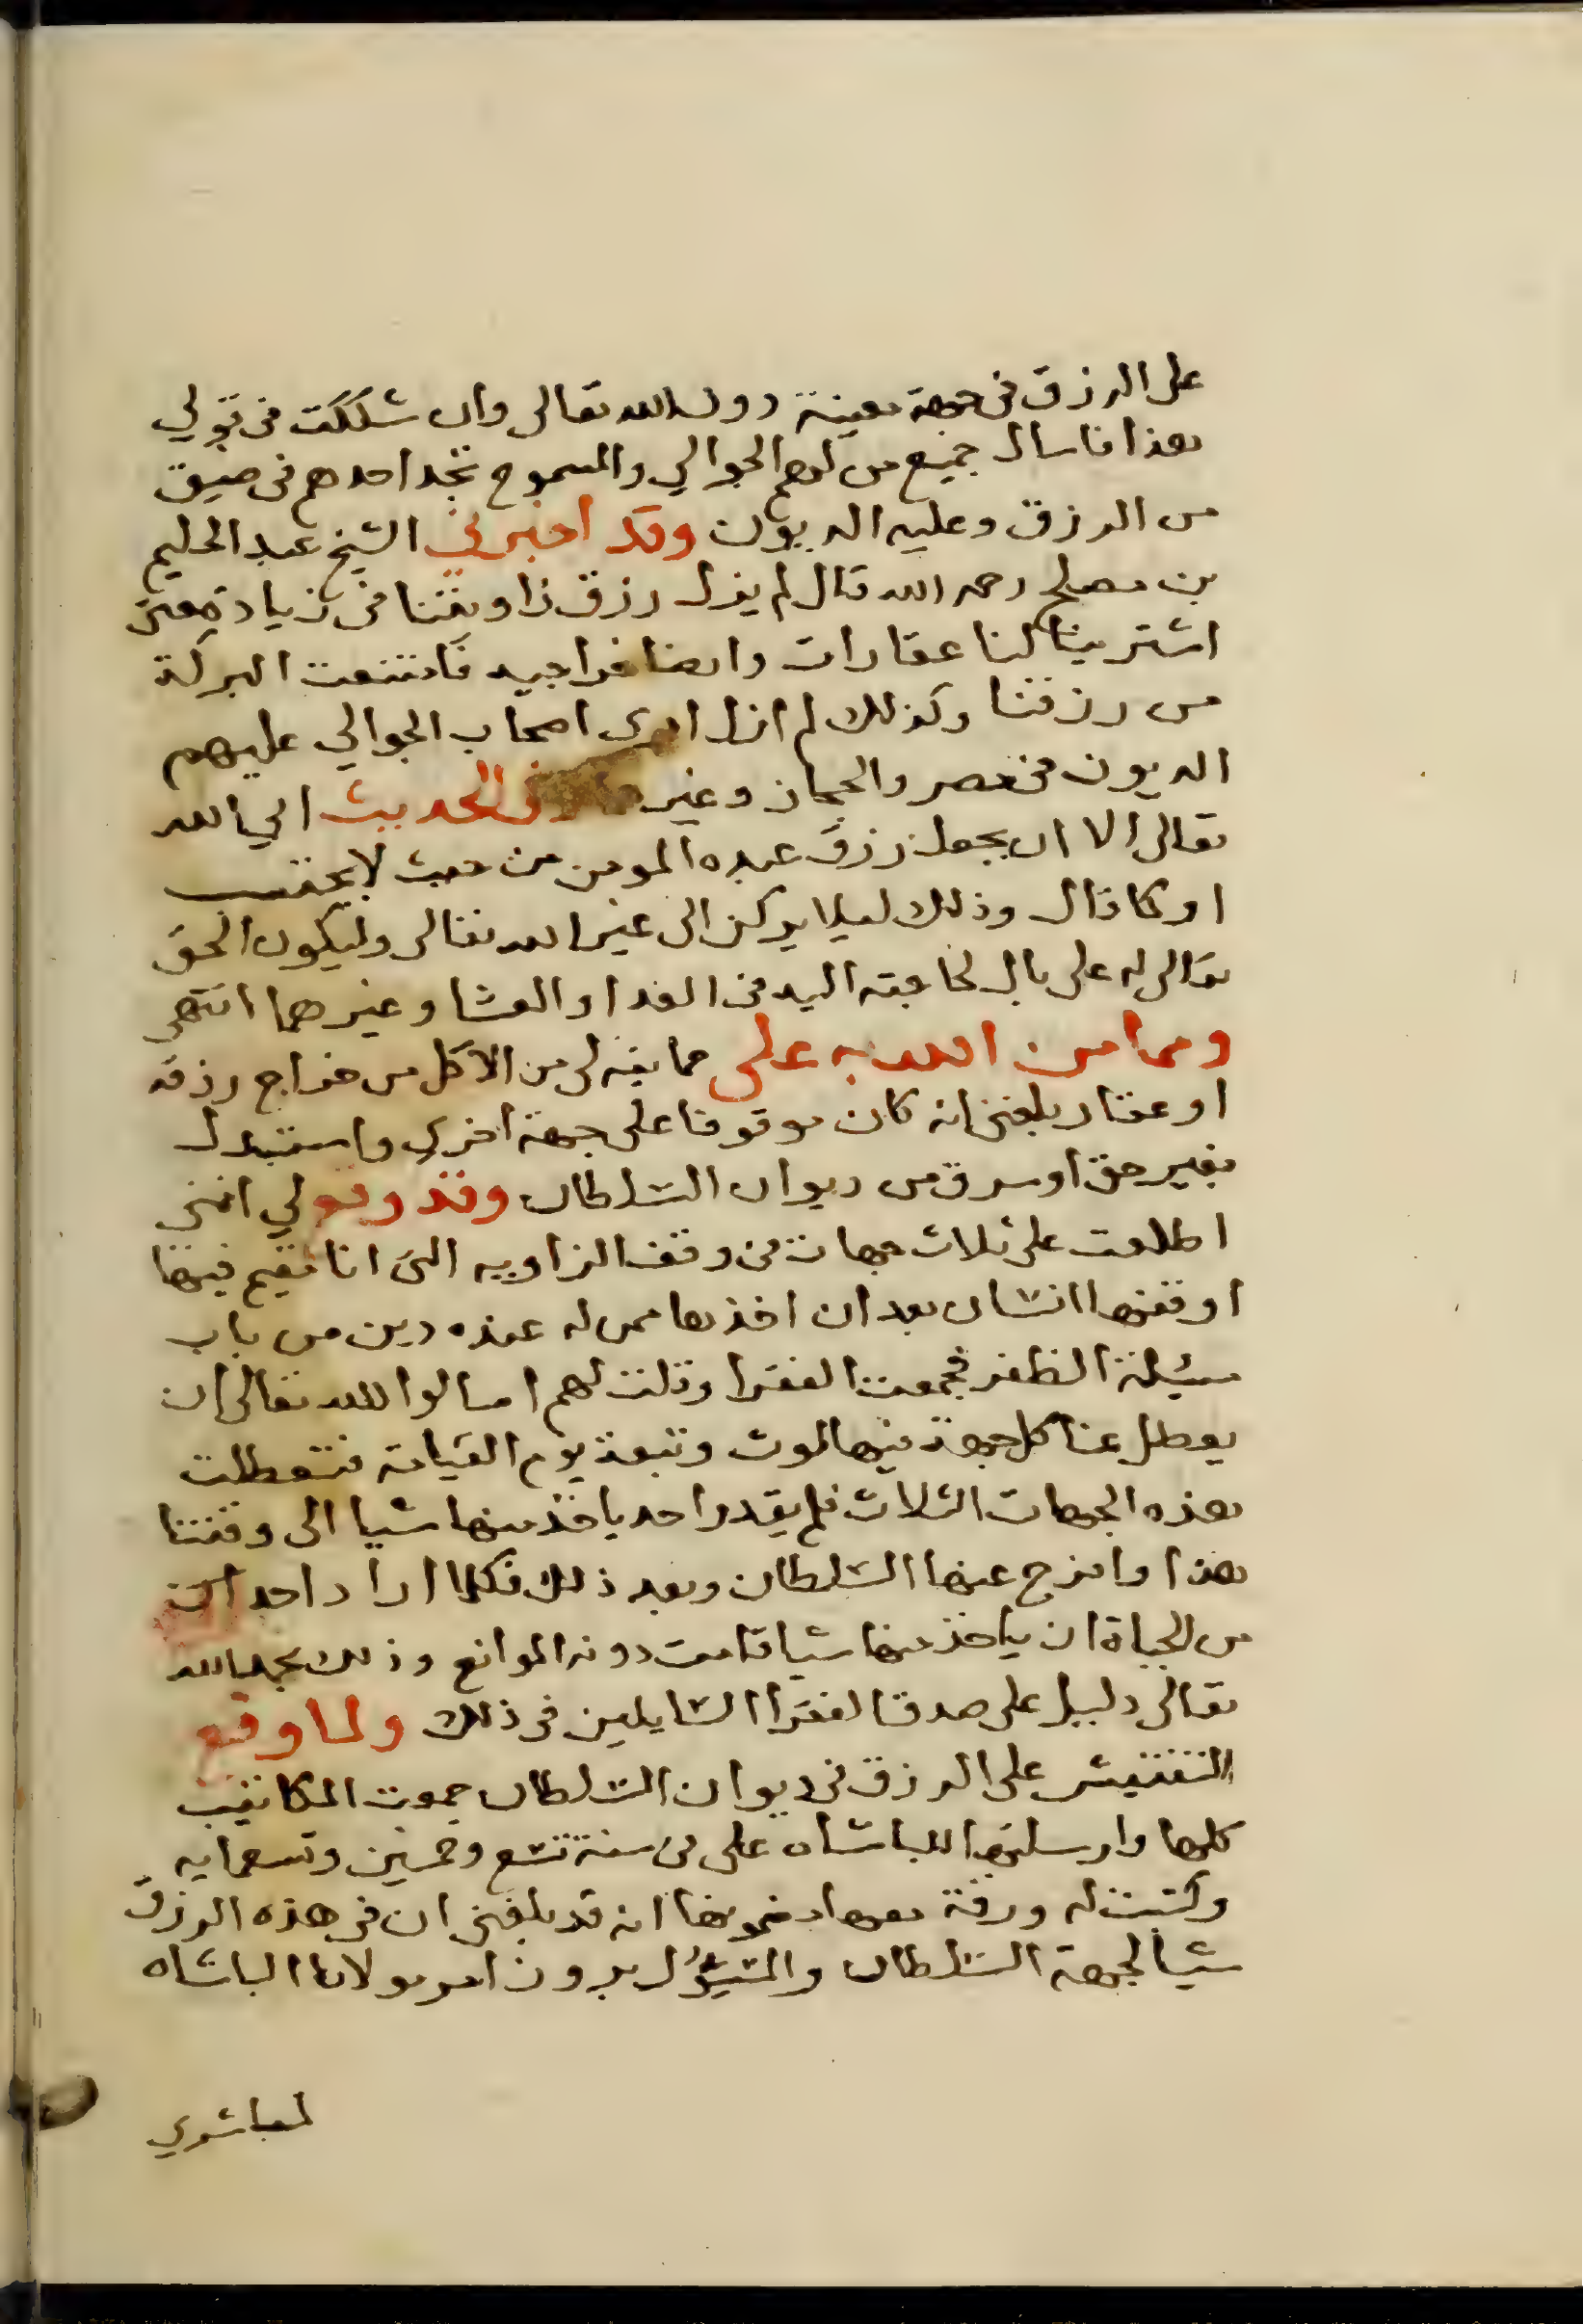 على الرزق فى جهة معينة دون الله تعالى وان شككت فى قولي
هذا فاسال جميع من لهم الجوالي والمسموح تجد احدهم فى ضيق
من الرزق وعليه الديون وقد اخبرني الشيخ عبد الحليم
بن مصلح رحمه الله قال لم يزل رزق زاويتنا فى زيادة حتى
اشترينا لنا عقارات وارضا خراجيه فامتنعت البركة
من رزقنا وكذلك لم ازل ارى اصحاب الجوالي عليهم
الديون فى مصر والحجاز وغير فى الحديث ابي الله
تعالى الا ان يجعل رزق عبده المومن من حيث لا يحتسب
او كما قال وذلك ليلا يركن الى غير الله تعالى وليكون الحق
تعالى له على بال لحاجته اليه فى الغدا والعشا وغيرهما انتهى
ومما من الله به على حمايته لى من الاكل من خراج رزقه
او عقار بلغنى انه كان موقوفا على جهة اخرى واستبدل
بغير حق او سرق من ديوان السلطان وقد وقع لي اننى
اطلعت على ثلاث جهات من وقف الزاويه التى انا مقيم فيها
اوقفها انسان بعد ان اخذها ممن له عنده دين من باب
مسئلة الظفر فجمعت الفقرا وقلت لهم اسالوا الله تعالى ان
يعطل عنا كل جهة فيها لوث وتبعة يوم القيامة فتعطلت
هذه الجهات الثلاث فلم يقدر احد ياخذ منها شيا الى وقتنا
هذا وافرج عنها السلطان وبعد ذلك فكلما اراد احد
من الجباة ان ياخذ منها شيا قامت دونه الموانع وذلك بحمد الله
تعالى دليل على صدق الفقرا السايلين فى ذلك ولما وقع
التفتيش على الرزق فى ديوان السلطان جمعت المكاتيب
كلها وارسلتها للباشاه على فى سنة تسع وخمسين وتسعمايه
وكتبت له ورقة معها مضمونها انه قد بلغنى ان فى هذه الرزق
شيا لجهة السلطان والمسؤل بروز امر مولانا الباشاه
لمباشري